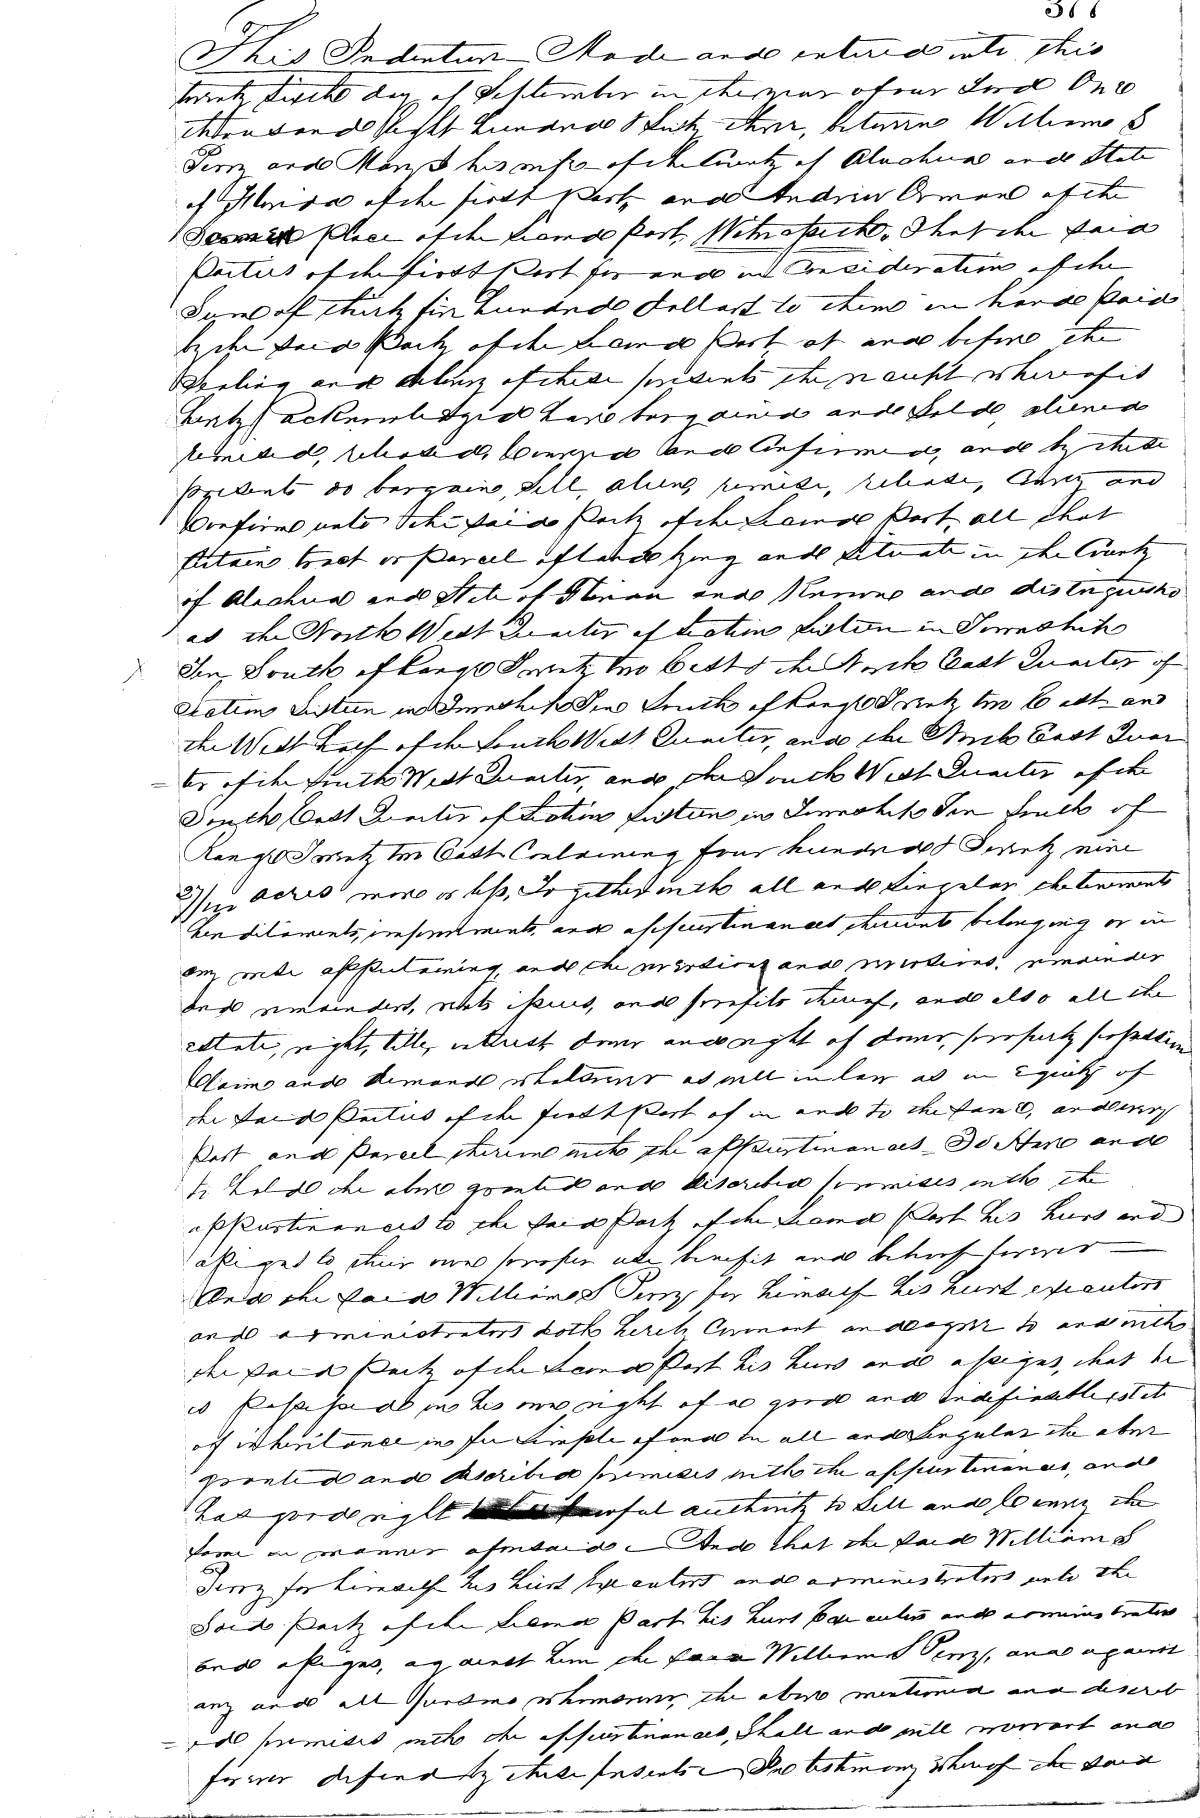 377
This Indenture Made and entered into this
twenty sixth day of September in the year of our Lord One
thousand eight hundred & sixty three, between William S
Perry and Mary his wife of the County of Alachua and State
of Florida of the first Part, and Andrew Orman of the
Same place of the Second Part, Witnesseth, That the said
Parties of the first Part for and in Consideration of the
Sum of thirty five hundred dollars to them in hand Paid
by the said Party of the Second Part at and before the
Sealing and delivery of these presents the receipt whereof is
hereby acknowledged have bargained and Sold, aliened
remised, released, Conveyed and Confirmed, and by these
presents do bargain, Sell, alien, remise, release, Convey and
Confirm unto the said Party of the Second Part, all that
Certain tract or parcel of land lying and situate in the County
of Alachua and State of Florida and Known and distinguishd
as the North West Quarter of Section Sixteen in Township
Ten South of Range Twenty two East & the North East Quarter of
Section Sixteen in Township Ten South of Range Twenty two East and
the West half of the South West Quarter, and the North East Quar
= ter of the South West Quarter, and the South West Quarter of the
South East Quarter of Section Sixteen in Township Ten South of
Range Twenty two East Containing four hundred & Seventy nine
27/100 acres more or less, Together with all and Singular the tenements
hereditaments, improvements, and appurtinances thereunto belonging or in
any wise appertaining, and the reversion and reversions, remainder
and remainders, rents issues, and profits thereof, and also all the
estate, right, title, interest dower and right of dower, property possession
Claim and demand whatsoever as well in law as in Equity of
the Said Parties of the first Part of in and to the same, and every
Part and Parcel thereof with the appurtinances To Have and
to hold the above granted and discribed premises with the
appurtinances to the said Party of the Second Part his heirs and
assigns to their own proper use benefit and behoof forever
And the said William S Perry for himself his heirs executors
and administrators doth hereby Covenant and agree to and with
the said Party of the Second Part his heirs and assigns, that he
is Possessed in his own right of a good and indefeasible estate
of inheritance in fee Simple of and in all and Singular the above
granted and discribed premises with the appurtinances, and
has good right lawful authority to Sell and Convey the
same in manner aforesaid And that the said William S
Perry for himself his heirs Executors and administrators unto the
Said Party of the Second Part his heirs Executors and administrators
and assigns, against him the said William S Perry, and against
any and all persons whomsoever, the above mentioned and discrib
= ed premises with the appurtinances, Shall and will warrant and
forever defend by these presents In testimony whereof the said